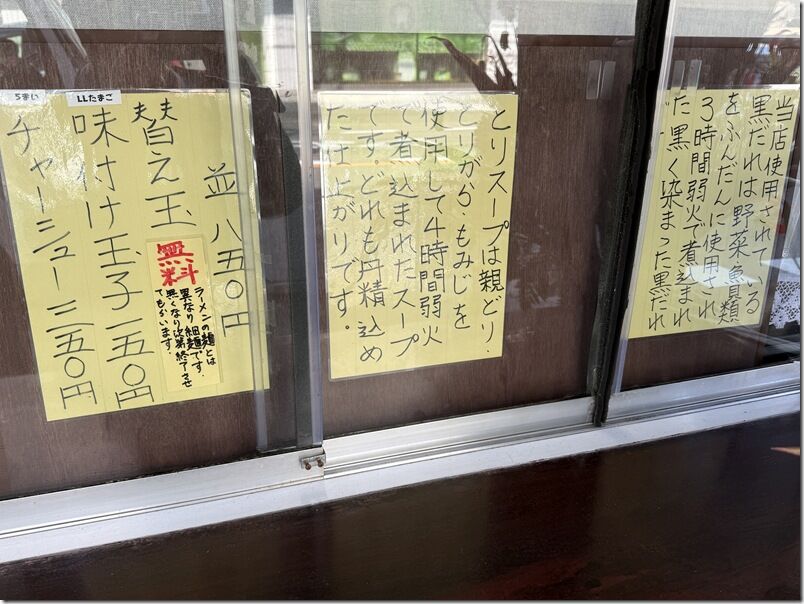 当店使用されている
黒だれは野菜・魚類
をふんだんに使用され
3時間弱火で煮込まれ
た黒く染まった黒だれ
とりスープは親どり・
とりがら・もみじを
使用して4時間弱火
で煮込まれたスープ
です。どれも丹精込め
た仕上がりです。
並 八五〇円
替え玉
無料
ラーメンの麺とは
異なり細麺です。
無くなり次第終了させ
てもらいます。
LLたまご
味付け玉子一五〇円
5まい
チャーシュー三五〇円